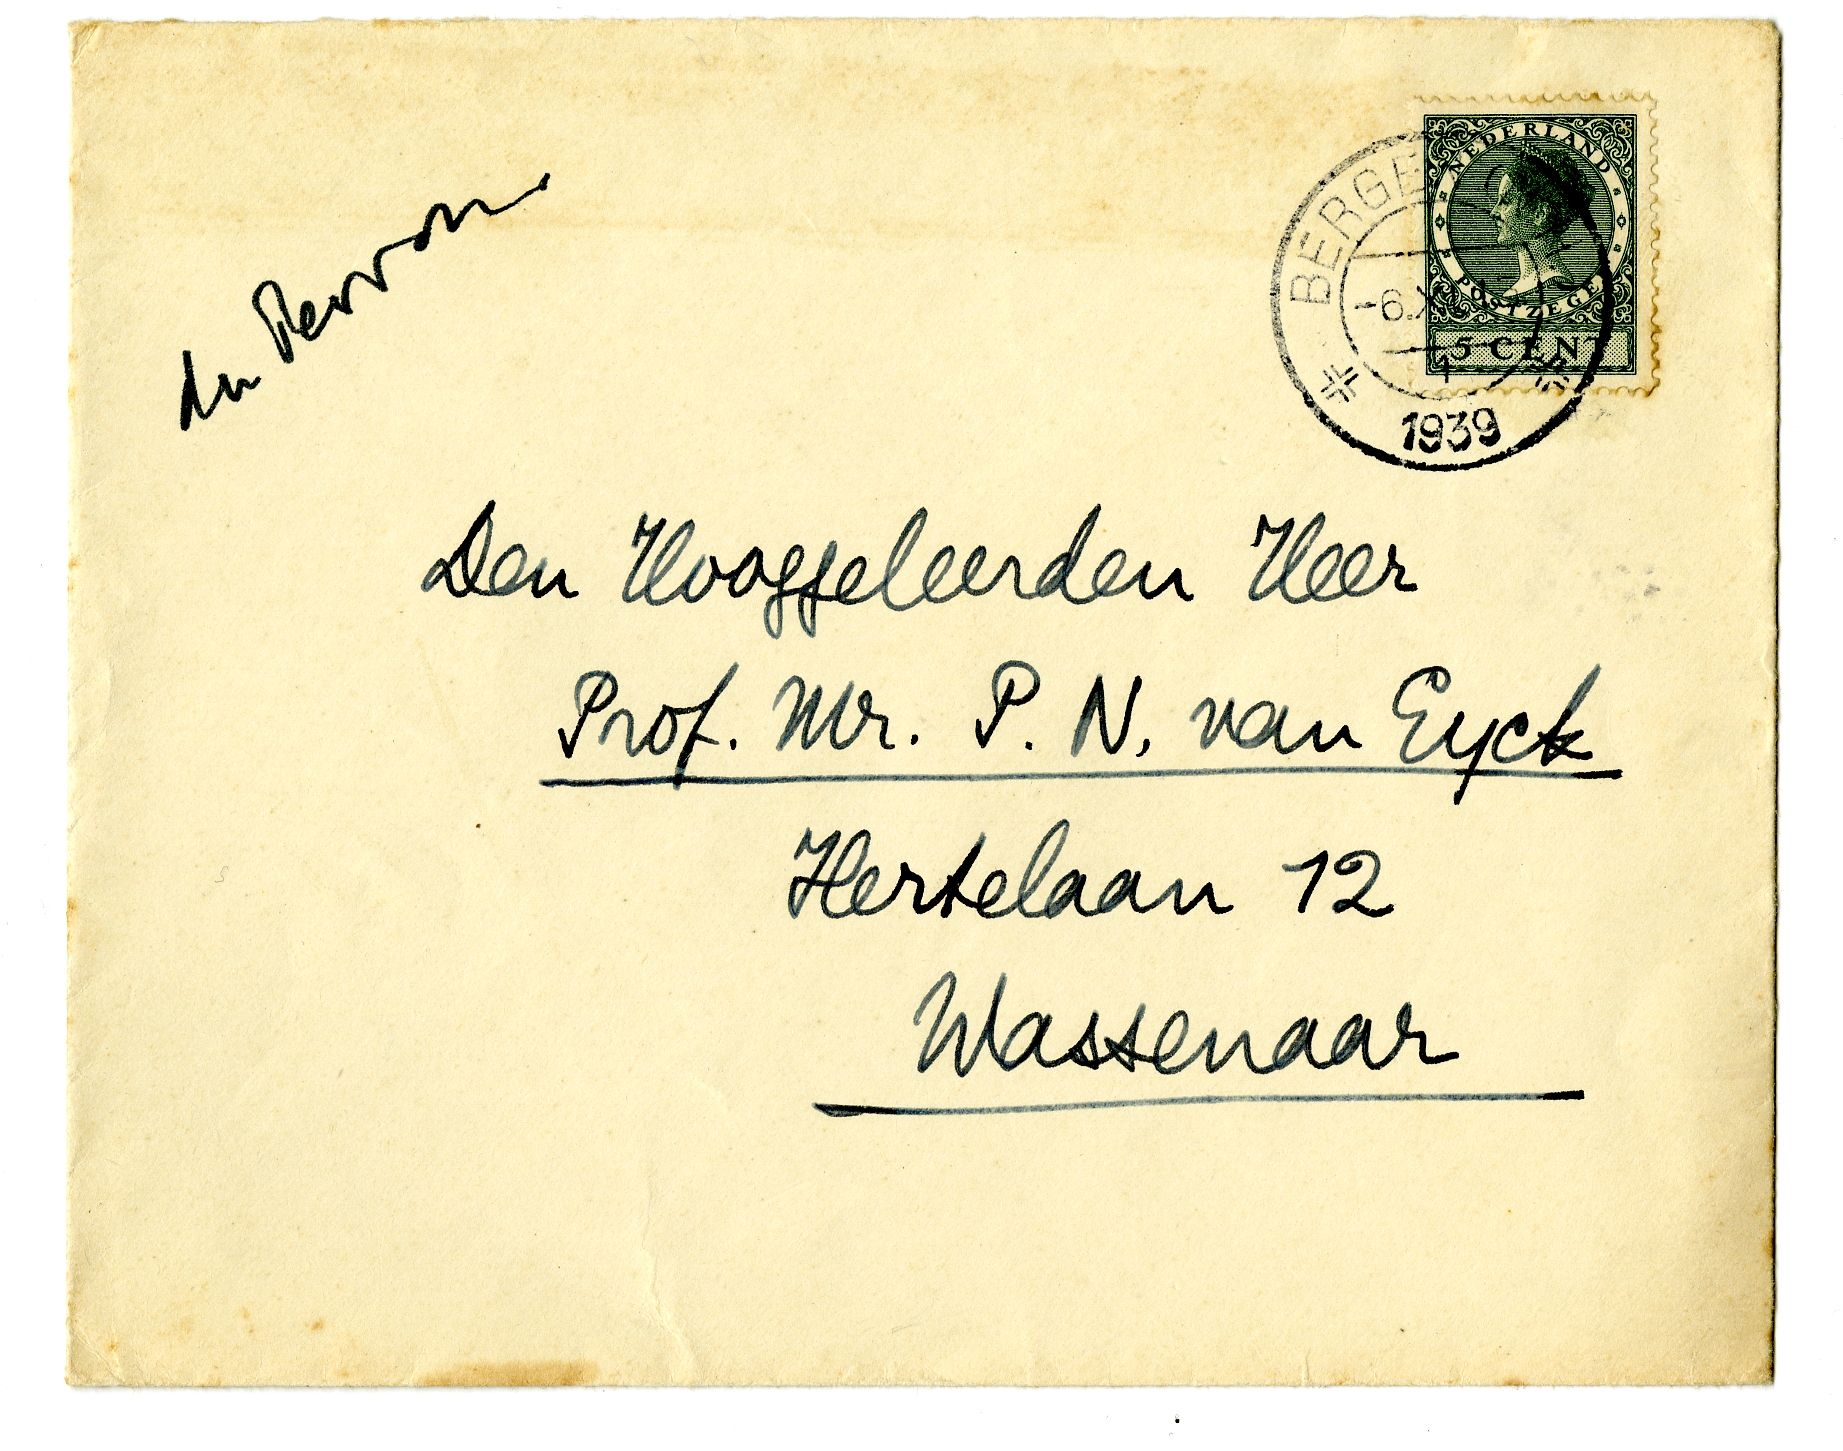 NEDERLAND
POSTZEGEL
5 CENT
BERGE
-6.X
1
1939
Den Hooggeleerden Heer
Prof. Mr. P. N. van Eyck
Hertelaan 12
Wassenaar